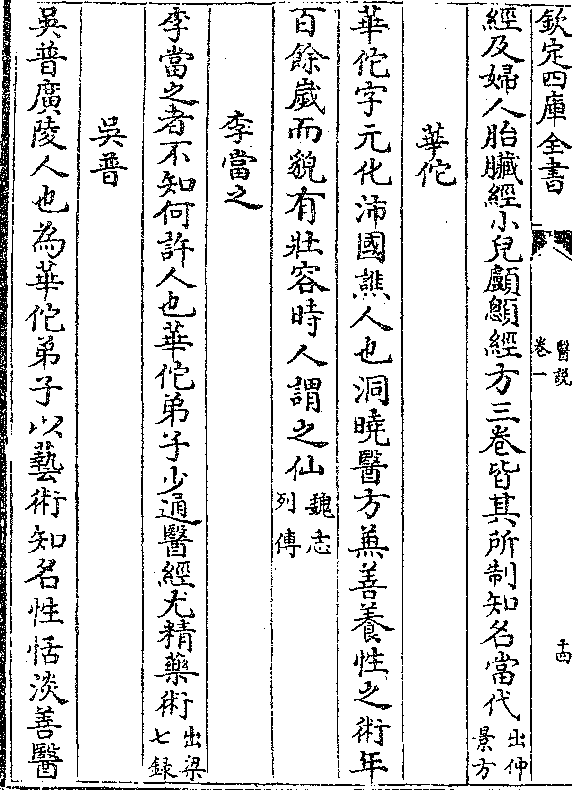 欽定四庫全書
醫說
卷一
十四
經及婦人胎臟經小兒顱顖經方三卷皆其所制知名當代出仲景方
華佗
華佗字元化沛國譙人也洞曉醫方兼善養性之術年
百餘歲而貌有壯容時人謂之仙魏志列傳
李當之
李當之者不知何許人也華佗弟子少通醫經尤精藥術出梁七録
吳普
吳普廣陵人也為華佗弟子以藝術知名性恬淡善醫